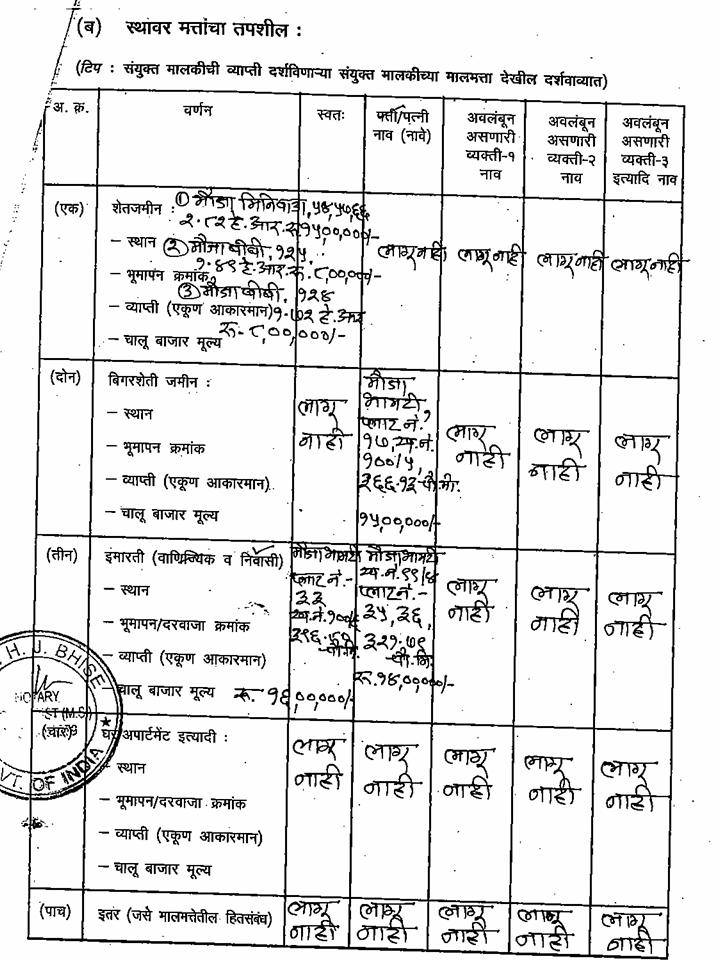 (ब) स्थावर मत्तांचा तपशील :
(टिप : संयुक्त मालकीची व्याप्ती दर्शविणाऱ्या संयुक्त मालकीच्या मालमत्ता देखील दर्शवाव्यात)
अ. क्र. वर्णन स्वतः पती/पत्नी नाव (नावे) अवलंबून असणारी व्यक्ती-१ नाव अवलंबून असणारी व्यक्ती-२ नाव अवलंबून असणारी व्यक्ती-३ इत्यादि नाव
(एक) शेतजमीन : ① मौजा
२.८२ हे.आर.रु.१५००,०००/-
– स्थान ② मौजा बीबी, १२५
१.४९ हे.आर.रु. ८००,०००/-
– भूमापन क्रमांक
③ मौजा बीबी, १२४
– व्याप्ती (एकूण आकारमान) १.७२ हे.आर
रु- ८,००,०००/-
– चालू बाजार मूल्य
लागू नाही लागू नाही लागू नाही लागू नाही
(दोन) बिगरशेती जमीन :
– स्थान
– भूमापन क्रमांक
– व्याप्ती (एकूण आकारमान)
– चालू बाजार मूल्य
लागू नाही
मौजा
भामटी,
प्लाट नं.
१७, ख.नं.
१००/५,
३६६.१२ चौ.मी.
१५,००,०००/-
लागू नाही
लागू नाही
लागू नाही
(तीन) इमारती (वाणिज्यिक व निवासी)
– स्थान
– भूमापन/दरवाजा क्रमांक
– व्याप्ती (एकूण आकारमान)
– चालू बाजार मूल्य रु. १६,००,०००/-
मौजा भामटी
प्लाट नं.-
३३
मौजा भामटी
ख.नं.९९/४
प्लाट नं.-
३५, ३६,
३२१.७९
चौ.मि.
रु.१४,००,०००/-
लागू नाही
लागू नाही
लागू नाही
H. J. BHISE
NOTARY
GOVT. OF INDIA
(चार) घर अपार्टमेंट इत्यादी :
– स्थान
– भूमापन/दरवाजा क्रमांक
– व्याप्ती (एकूण आकारमान)
– चालू बाजार मूल्य
लागू नाही
लागू नाही
लागू नाही
लागू नाही
लागू नाही
(पाच) इतर (जसे मालमत्तेतील हितसंबंध)
लागू नाही
लागू नाही
लागू नाही
लागू नाही
लागू नाही